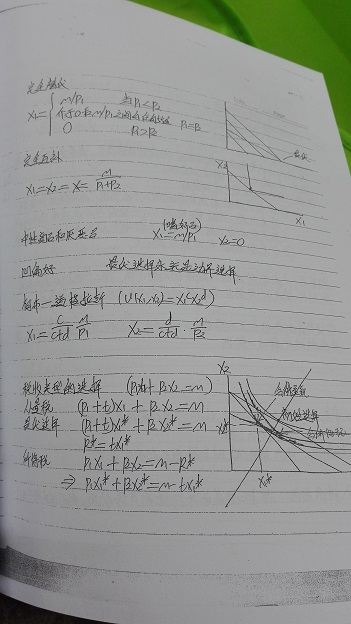 完全替代
x₁= { m/p₁ 当p₁<p₂
介于0和m/p₁之间的任何数 p₁=p₂
0 p₁>p₂
完全互补
x₁=x₂=x=m/(p₁+p₂)
x₂
x₁
中性商品和厌恶品 x₁=m/p₁ x₂=0
凹偏好 最优选择永远是边界选择
柯布—道格拉斯 (U(x₁,x₂)=x₁ᶜx₂ᵈ)
x₁=c/(c+d) m/p₁ x₂=d/(c+d)·m/p₂
税收类型的选择 (p₁x₁+p₂x₂=m)
从量税 (p₁+t)x₁+p₂x₂=m
最优选择 (p₁+t)x₁*+p₂x₂*=m
R*=tx₁*
所得税 p₁x₁+p₂x₂=m-R*
⇒ p₁x₁*+p₂x₂*=m-tx₁*
x₂
x₂*
x₁*